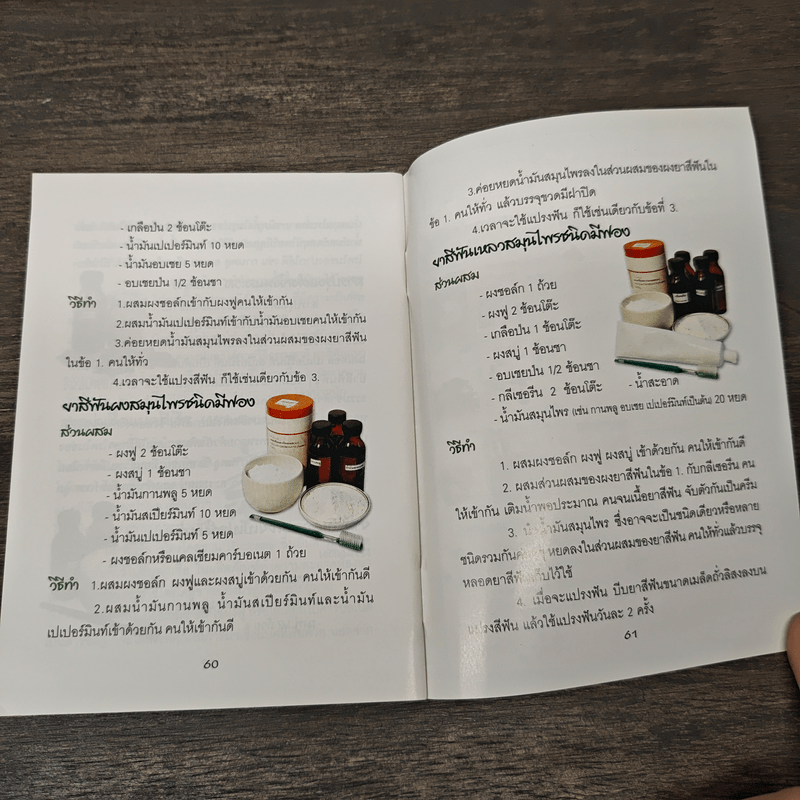 - เกลือป่น 2 ช้อนโต๊ะ
- น้ำมันเปเปอร์มินท์ 10 หยด
- น้ำมันอบเชย 5 หยด
- อบเชยป่น 1/2 ช้อนชา
วิธีทำ 1.ผสมผงชอล์กเข้ากับผงฟูคนให้เข้ากัน
2.ผสมน้ำมันเปเปอร์มินท์เข้ากับน้ำมันอบเชยคนให้เข้ากัน
3.ค่อยหยดน้ำมันสมุนไพรลงในส่วนผสมของผงยาสีฟัน
ในข้อ 1. คนให้ทั่ว
4.เวลาจะใช้แปรงสีฟัน ก็ใช้เช่นเดียวกับข้อ 3.
ยาสีฟันผงสมุนไพรชนิดมีฟอง
ส่วนผสม
- ผงฟู 2 ช้อนโต๊ะ
- ผงสบู่ 1 ช้อนชา
- น้ำมันกานพลู 5 หยด
- น้ำมันสเปียร์มินท์ 10 หยด
- น้ำมันเปเปอร์มินท์ 5 หยด
- ผงชอล์กหรือแคลเซียมคาร์บอเนต 1 ถ้วย
วิธีทำ 1.ผสมผงชอล์ก ผงฟูและผงสบู่เข้าด้วยกัน คนให้เข้ากันดี
2.ผสมน้ำมันกานพลู น้ำมันสเปียร์มินท์และน้ำมัน
เปเปอร์มินท์เข้าด้วยกัน คนให้เข้ากันดี
60
3.ค่อยหยดน้ำมันสมุนไพรลงในส่วนผสมของผงยาสีฟันใน
ข้อ 1. คนให้ทั่ว แล้วบรรจุขวดมีฝาปิด
4.เวลาจะใช้แปรงฟัน ก็ใช้เช่นเดียวกับข้อที่ 3.
ยาสีฟันเหลวสมุนไพรชนิดมีฟอง
ส่วนผสม
- ผงชอล์ก 1 ถ้วย
- ผงฟู 2 ช้อนโต๊ะ
- เกลือป่น 1 ช้อนโต๊ะ
- ผงสบู่ 1 ช้อนชา
- อบเชยป่น 1/2 ช้อนชา
- กลีเซอรีน 2 ช้อนโต๊ะ - น้ำสะอาด
- น้ำมันสมุนไพร (เช่น กานพลู อบเชย เปเปอร์มินท์เป็นต้น) 20 หยด
วิธีทำ
1. ผสมผงชอล์ก ผงฟู ผงสบู่ เข้าด้วยกัน คนให้เข้ากันดี
2. ผสมส่วนผสมของผงยาสีฟันในข้อ 1. กับกลีเซอรีน คน
ให้เข้ากัน เติมน้ำพอประมาณ คนจนเนื้อยาสีฟัน จับตัวกันเป็นครีม
3. นำน้ำมันสมุนไพร ซึ่งอาจจะเป็นชนิดเดียวหรือหลาย
ชนิดรวมกัน หยดลงในส่วนผสมของยาสีฟัน คนให้ทั่วแล้วบรรจุ
หลอดยาสีฟันเก็บไว้ใช้
4. เมื่อจะแปรงฟัน บีบยาสีฟันขนาดเมล็ดถั่วลิสงลงบน
แปรงสีฟัน แล้วใช้แปรงฟันวันละ 2 ครั้ง
61